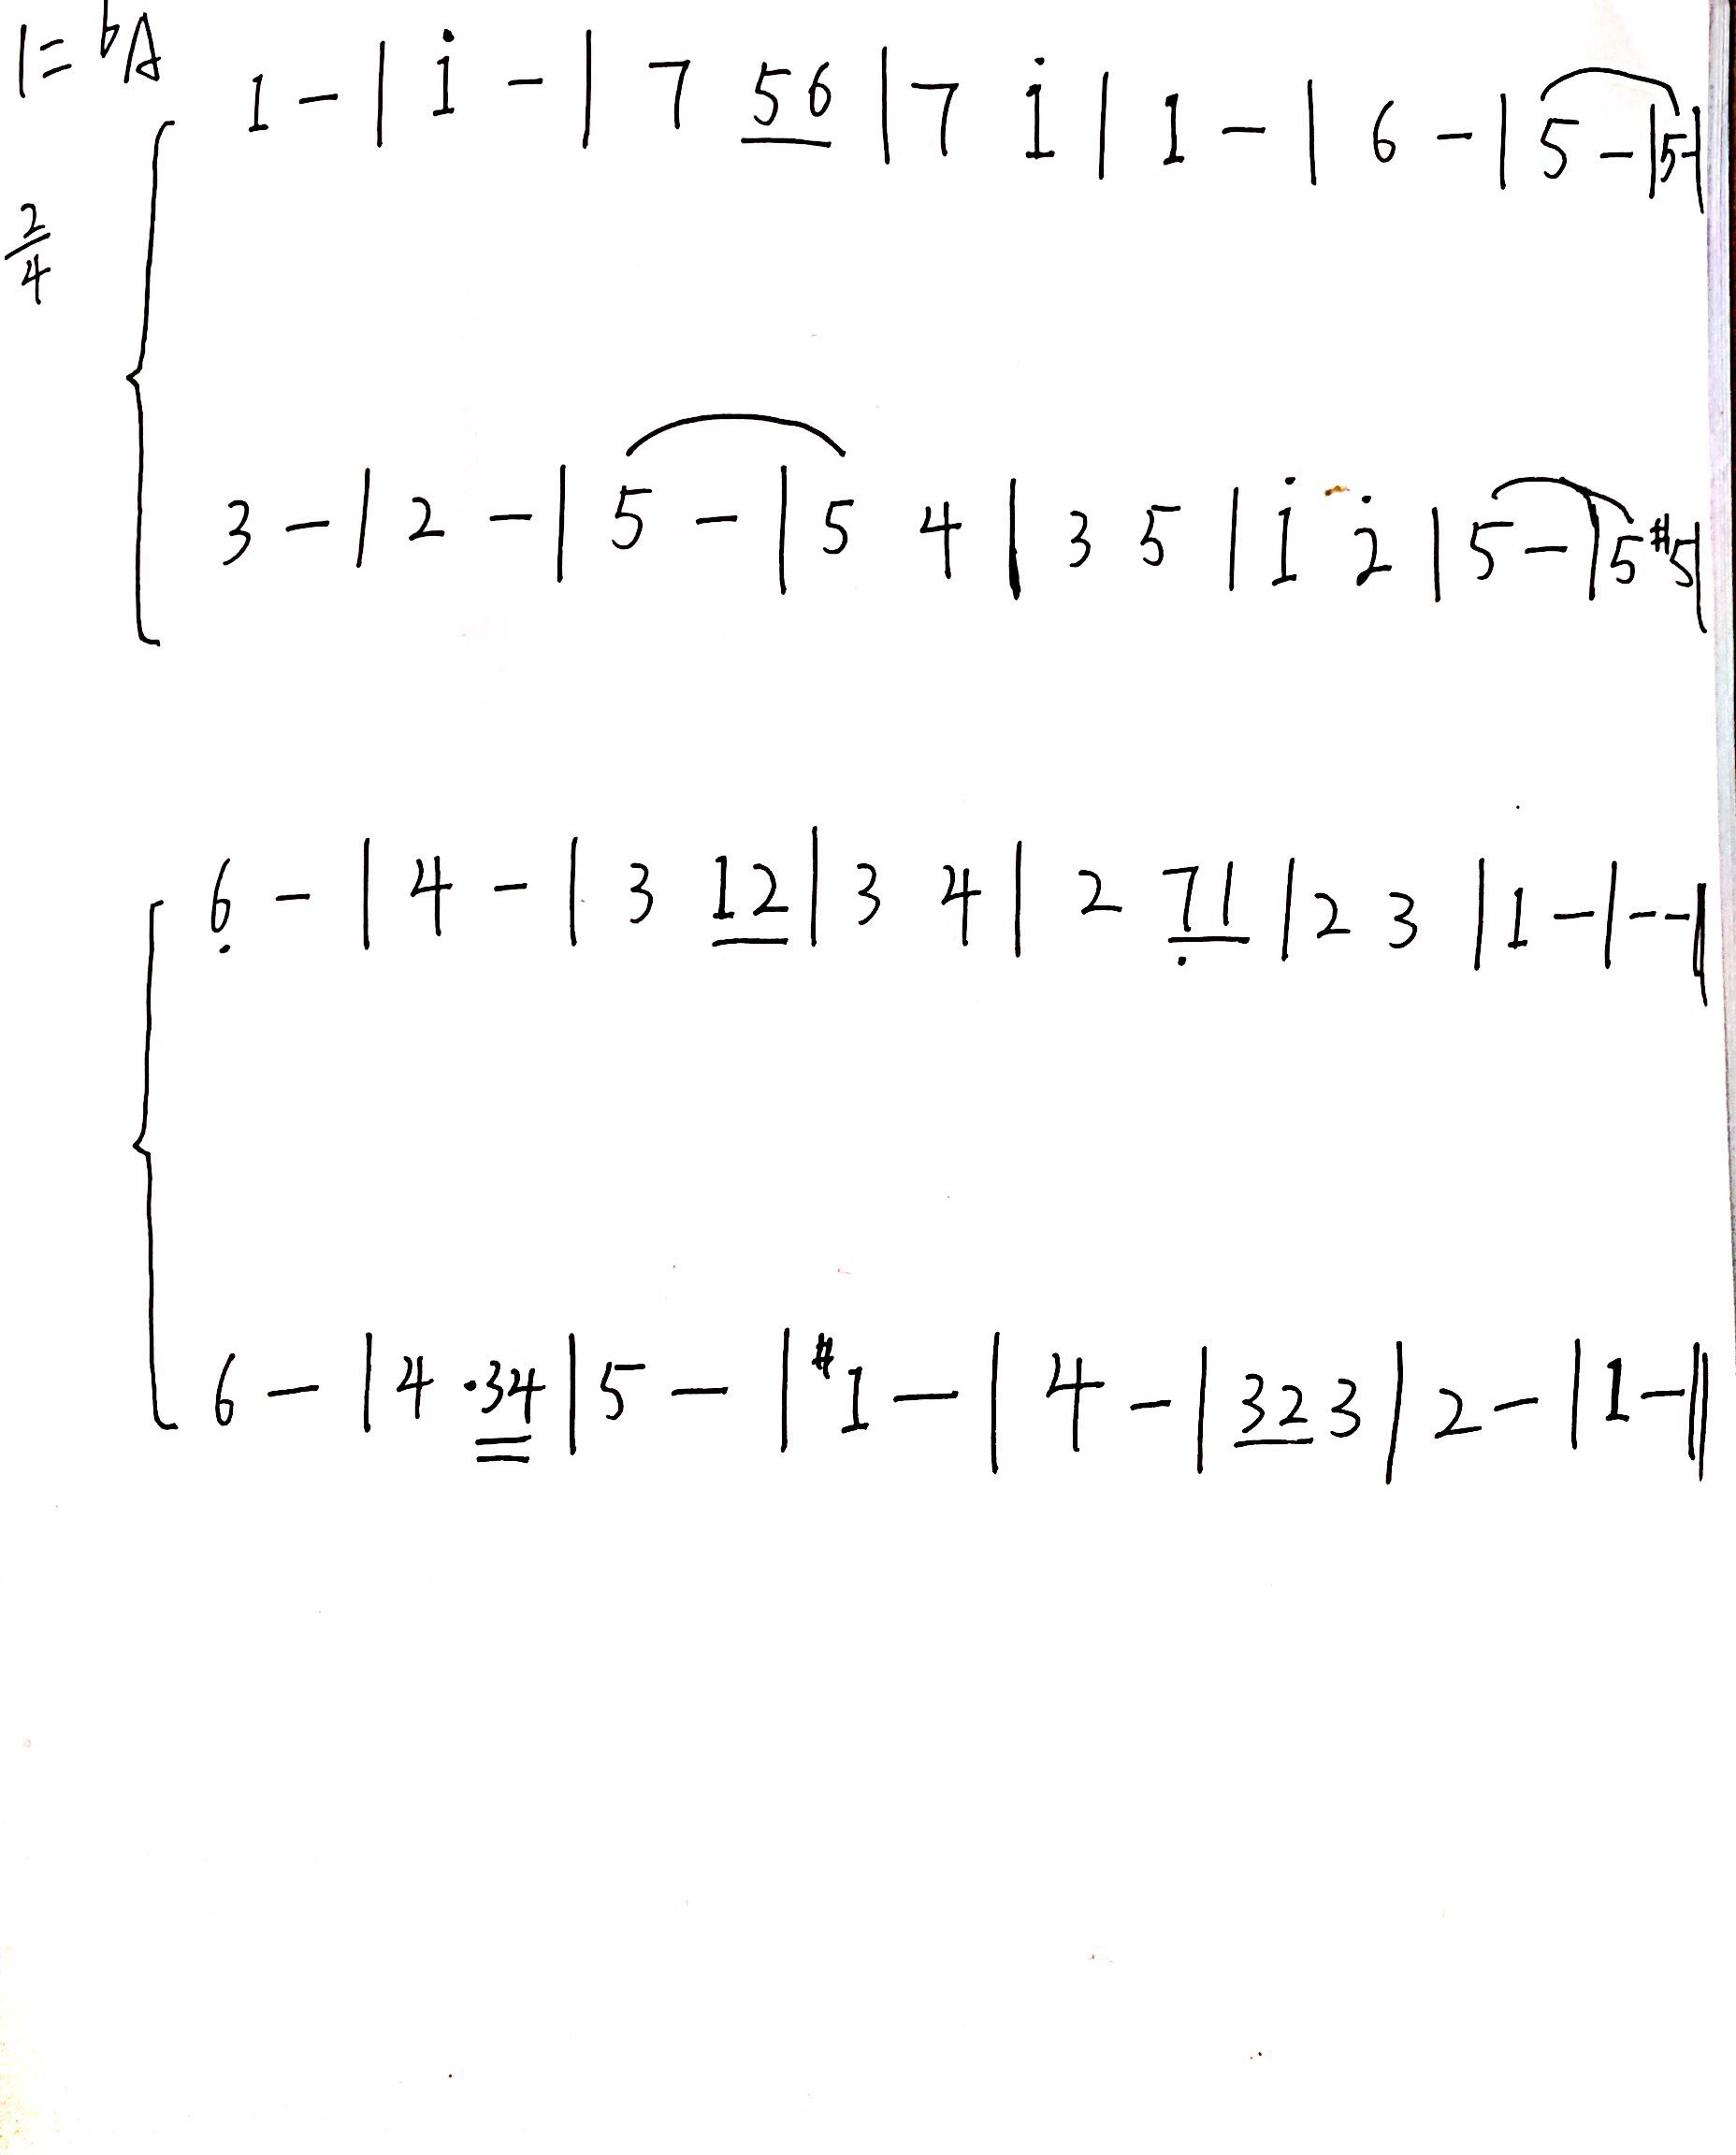 1=♭A
1 - | i̇ - | 7 5̲6̲ | 7 1̇ | 1 - | 6 - | 5 - | 5 - |
2/4
3 - | 2 - | 5 - | 5 4 | 3 5 | 1̇ 2̇ | 5 - | 5 #5 |
6̣ - | 4 - | 3 1̲2̲ | 3 4 | 2 7̣̲1̲ | 2 3 | 1 - | - - ||
6 - | 4 · 3̳4̳ | 5 - | #1 - | 4 - | 3̲2̲ 3 | 2 - | 1 - ||